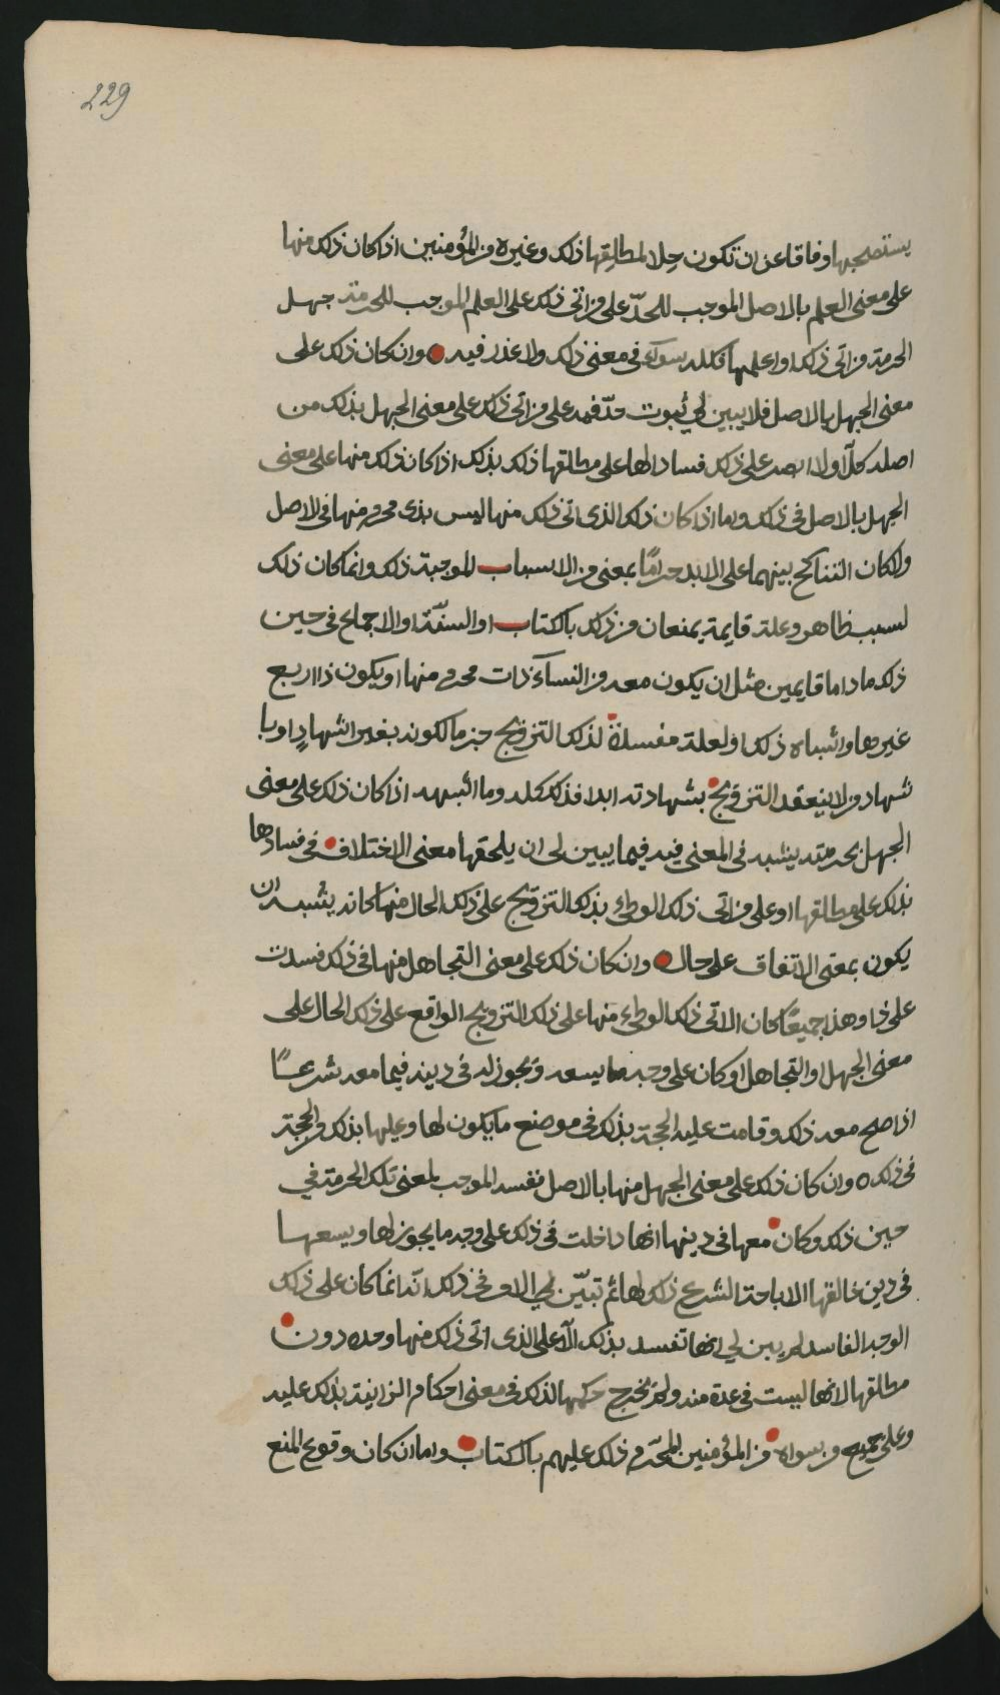 229
يستصحبها وفاقا عن ان تكون حلا لمطلقها ذلك وغيره من المؤمنين اذا كان ذلك منها
على معنى العلم بالاصل الموجب للحدّ على من اتى ذلك على العلم الموجب للحرمة جهل
الحرمة من اتى ذلك او اعلمها فكله سوآء في معنى ذلك ولا عذر فيه وان كان ذلك على
معنى الجهل بالاصل فلا يبين لي ثبوت حدّ فيه على من اتى ذلك على معنى الجهل بذلك من
اصله كلّا ولا ابصر على ذلك فسادا لها على مطلقها ذلك بذلك اذا كان ذلك منها على معنى
الجهل بالاصل في ذلك واما اذا كان ذلك الذي اتى ذلك منها ليس بذي محرم منها في الاصل
ولا كان التناكح بينهما على الابد حرامًا بمعنى من الاسباب الموجبة ذلك وانما كان ذلك
لسبب ظاهر وعلة قايمة يمنعان من ذلك بالكتاب او السنّة او الاجماع في حين
ذلك ما داما قايمين مثل ان يكون معه من النسآء ذات محرم منها او يكون ذا اربع
غيرها واشباه ذلك او لعلة مفسدة لذلك التزويج حينما لكونه بغير اشهاد او با
شهاد من لا ينعقد التزويج بشهادته ابدا فذلك كله وما اشبهه اذا كان ذلك على معنى
الجهل بحرمته يشبه في المعنى فيه فيما يبين لي ان يلحقها معنى الاختلاف في فسادها
بذلك على مطلقها او على من اتى ذلك الوطئ بذلك التزويج على ذلك الحال منها كانه يشبه ان
يكون بمعنى الاتفاق على حال وان كان ذلك على معنى التجاهل منها في ذلك فسدت
على ذا وهذا جميعًا كان الاتى ذلك الوطئ منها على ذلك التزويج الواقع على ذلك الحال على
معنى الجهل او التجاهل او كان على وجه ما يسعه ويجوز له في دينه فيما معه شرعًا
اذا صح معه ذلك وقامت عليه الحجة بذلك في موضع ما يكون لها وعليها بذلك والحجة
في ذلك ه وان كان ذلك على معنى الجهل منها بالاصل نفسه الموجب لمعنى تلك الحرمة في
حين ذلك وكان معها في دينها انها داخلت في ذلك على وجه ما يجوز لها ويسعها
في دين خالقها الاباحة الشرع ذلك لها ثم تبيّن لي الامر في ذلك انّه انما كان على ذلك
الوجه الفاسد لم يبن لي انها تفسد بذلك الّا على الذي اتى ذلك منها وحده دون
مطلقها لانها ليست في عدة منه ولم يخرج حكمها لذلك في معنى احكام الزانية بذلك عليه
وعلى جميع من سواه من المؤمنين المحرّم ذلك عليهم بالكتاب واما ان كان وقوع المنع